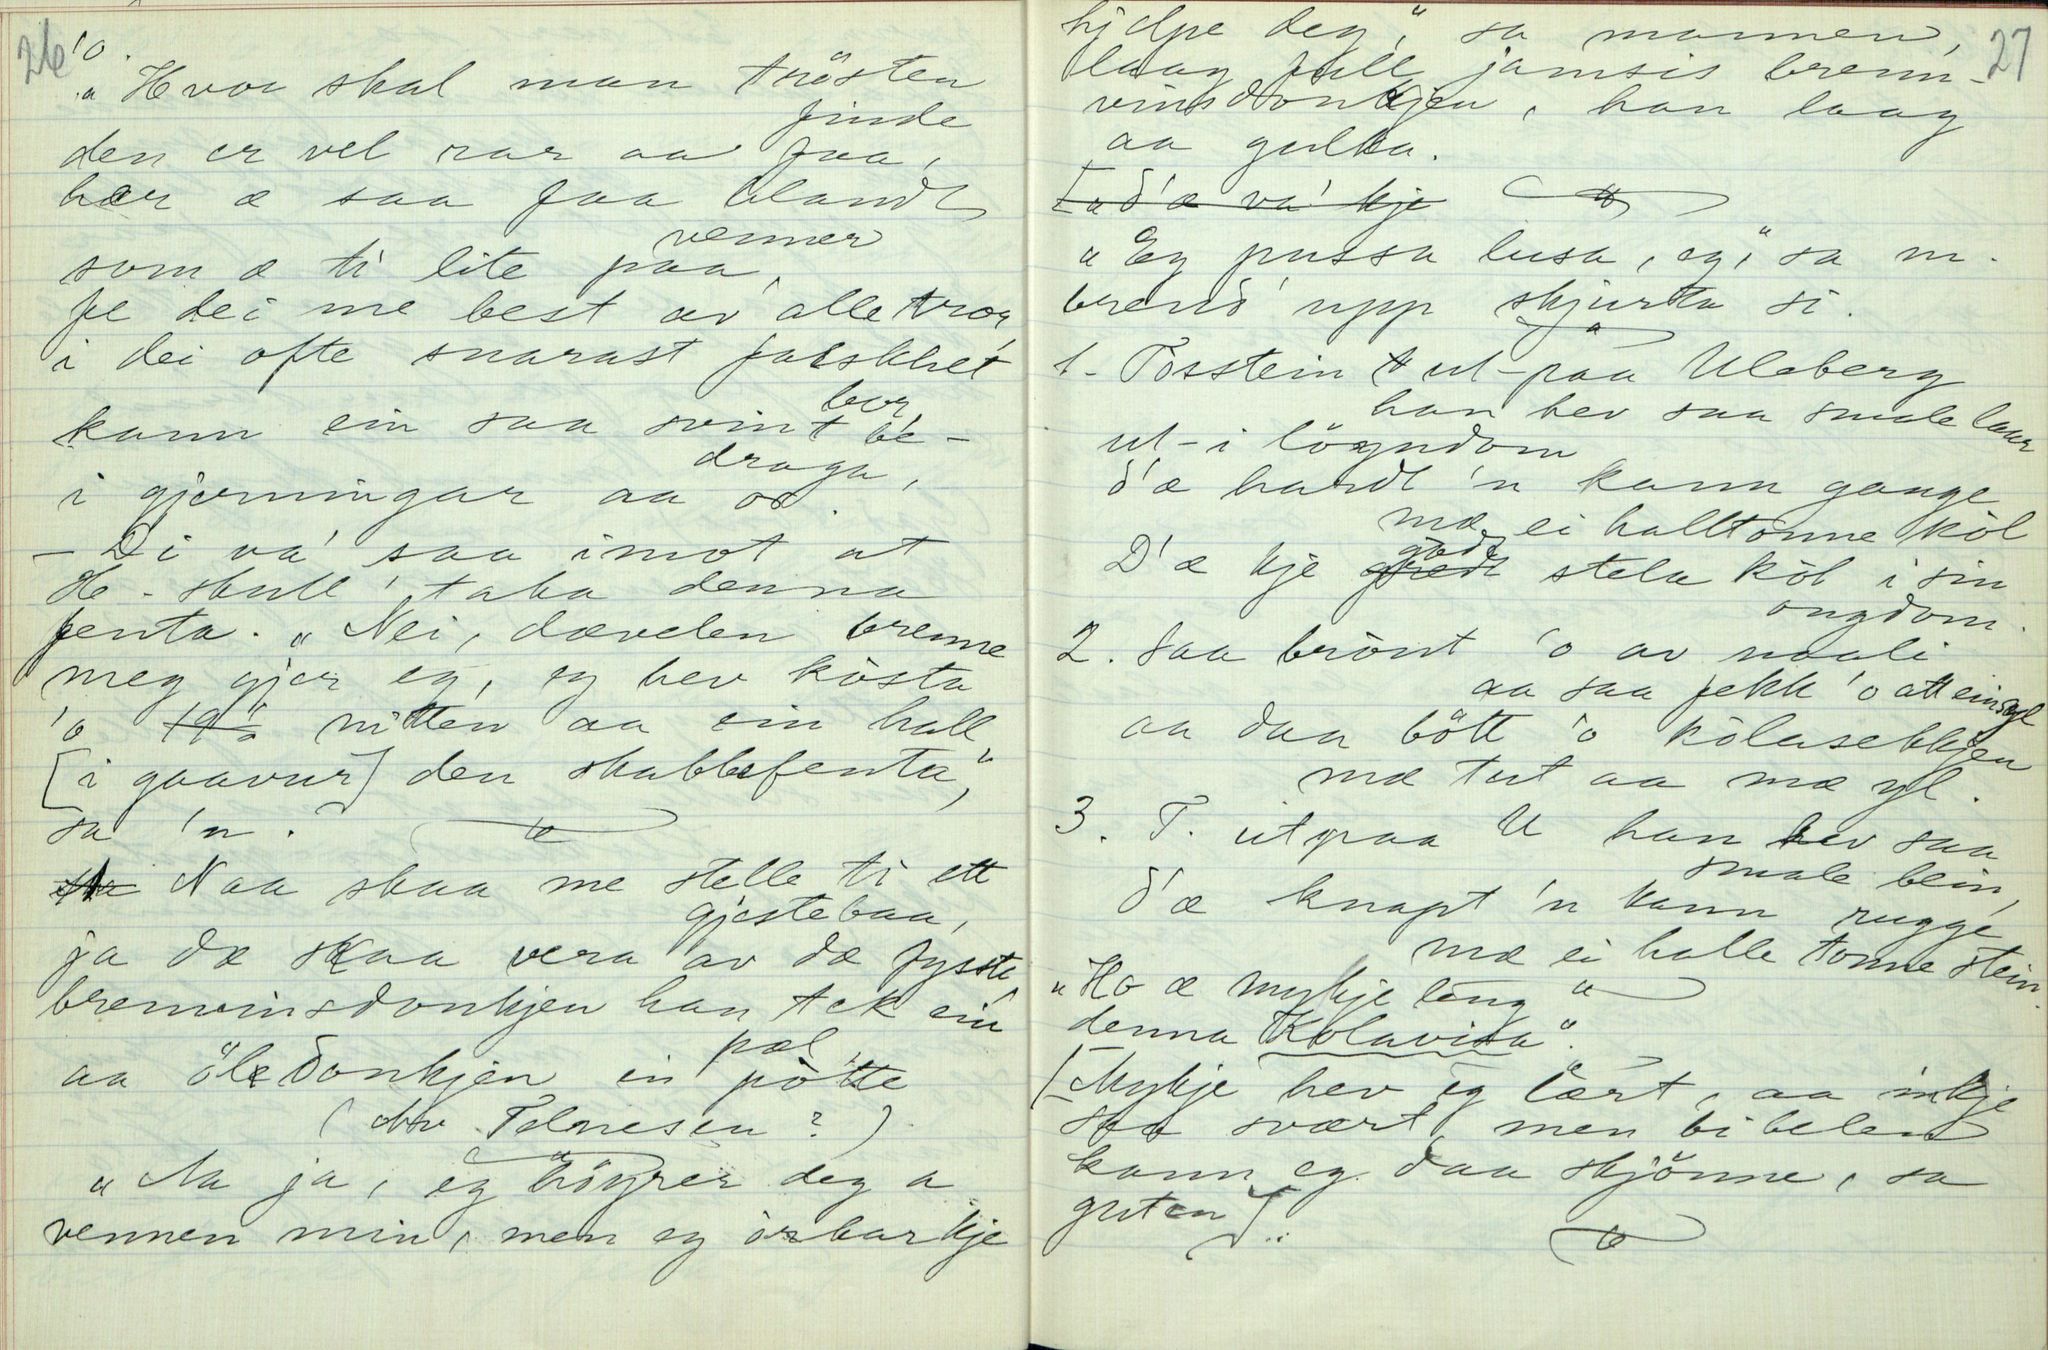 26
'o.
"Hvor skal man trösten
finde
den er vel rar aa faa,
her æ saa faa blandt
venner
som æ ti lite paa,
fe dei me best av alle tror
i dei ofte snarast falskhet
bor,
kann ein saa svint be-
draga,
i gjerningar aa or.
- Di va' saa imot at
H. skull' taka denna
fenta. "Nei, dævelen brenne
meg gjer eg, eg hev kösta
'o 19 nitten aa ein hall
[i gaavur] den skabbefenta,"
sa 'n.
Naa skaa me stelle ti ett
gjestebaa,
ja dæ skaa vera av dæ fysste
brennvinsdonkjen han tek ein
pæl
aa öledonkjen ein pötte
( Telnesen ? )
"Na ja, eg höyrer deg a
vennen min, men eg orkar kje
27
hjelpe deg," sa mannen,
laag full jamsis brenn-
vinsdonkjen, han laag
aa gulka.
["d'æ va' kje
"Eg pussa lusa, eg," sa m.
brend' upp skjurta si.
1. Tosstein ut-paa Uleberg
han hev saa smale laar
ut-i lögndom
d'æ hardt 'n kann gange
mæ ei halltonne köl
D'æ kje godt stela köl i sin
ongdom.
2. Saa brönt 'o av naali
aa saa fekk 'o att ein syl
aa daa bött 'o kölasekkjen
mæ tut aa mæ yl.
3. T. utpaa U han hev saa
smale bein,
d'æ knapt 'n kann rugge
mæ ei halle tonne stein.
"Ho æ mykje long
denna Kolavisa".
[Mykje hev eg lært, aa inkje
saa svært, men bibelen
kann eg daa skjönne, sa
guten].